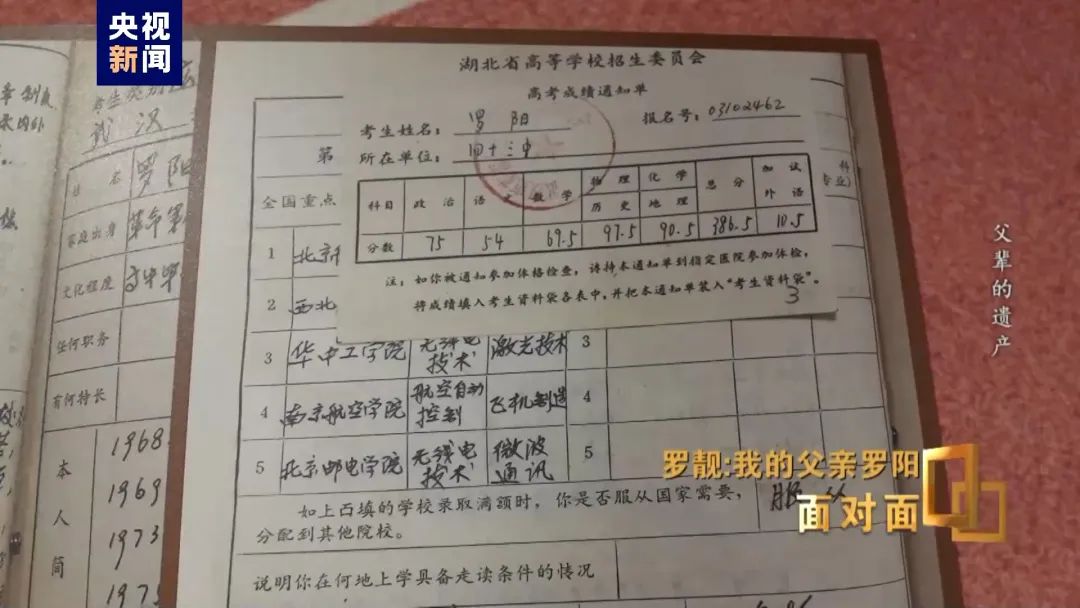 央视
新闻
湖北省高等学校招生委员会
高考成绩通知单
考生姓名：罗阳 报名号：03102462
所在单位：四十三中
科目 政治 语文 数学 物理 历史 化学 地理 总分 加试 外语
分数 75 54 69.5 97.5 90.5 386.5 10.5
注：如你被通知参加体格检查，请持本通知单到指定医院参加体检，
将成绩填入考生资料袋各表中，并把本通知单装入“考生资料袋”。
3
第
全国重点
科
专业)
1 北京
2 西北
3 华中工学院 无线电技术 激光技术 3
4 南京航空学院 航空自动控制 飞机制造 4
5 北京邮电学院 无线电技术 微波通讯 5
如上面填的学校录取满额时，你是否服从国家需要，
分配到其他院校。
服从
说明你在何地上学具备走读条件的情况
考生类别
武汉
姓名 罗阳
家庭出身 革命军
文化程度 高中毕
任何职务
有何特长
本人简
1968
1969
1973
197
父辈的遗产
罗靓:我的父亲罗阳
面对面